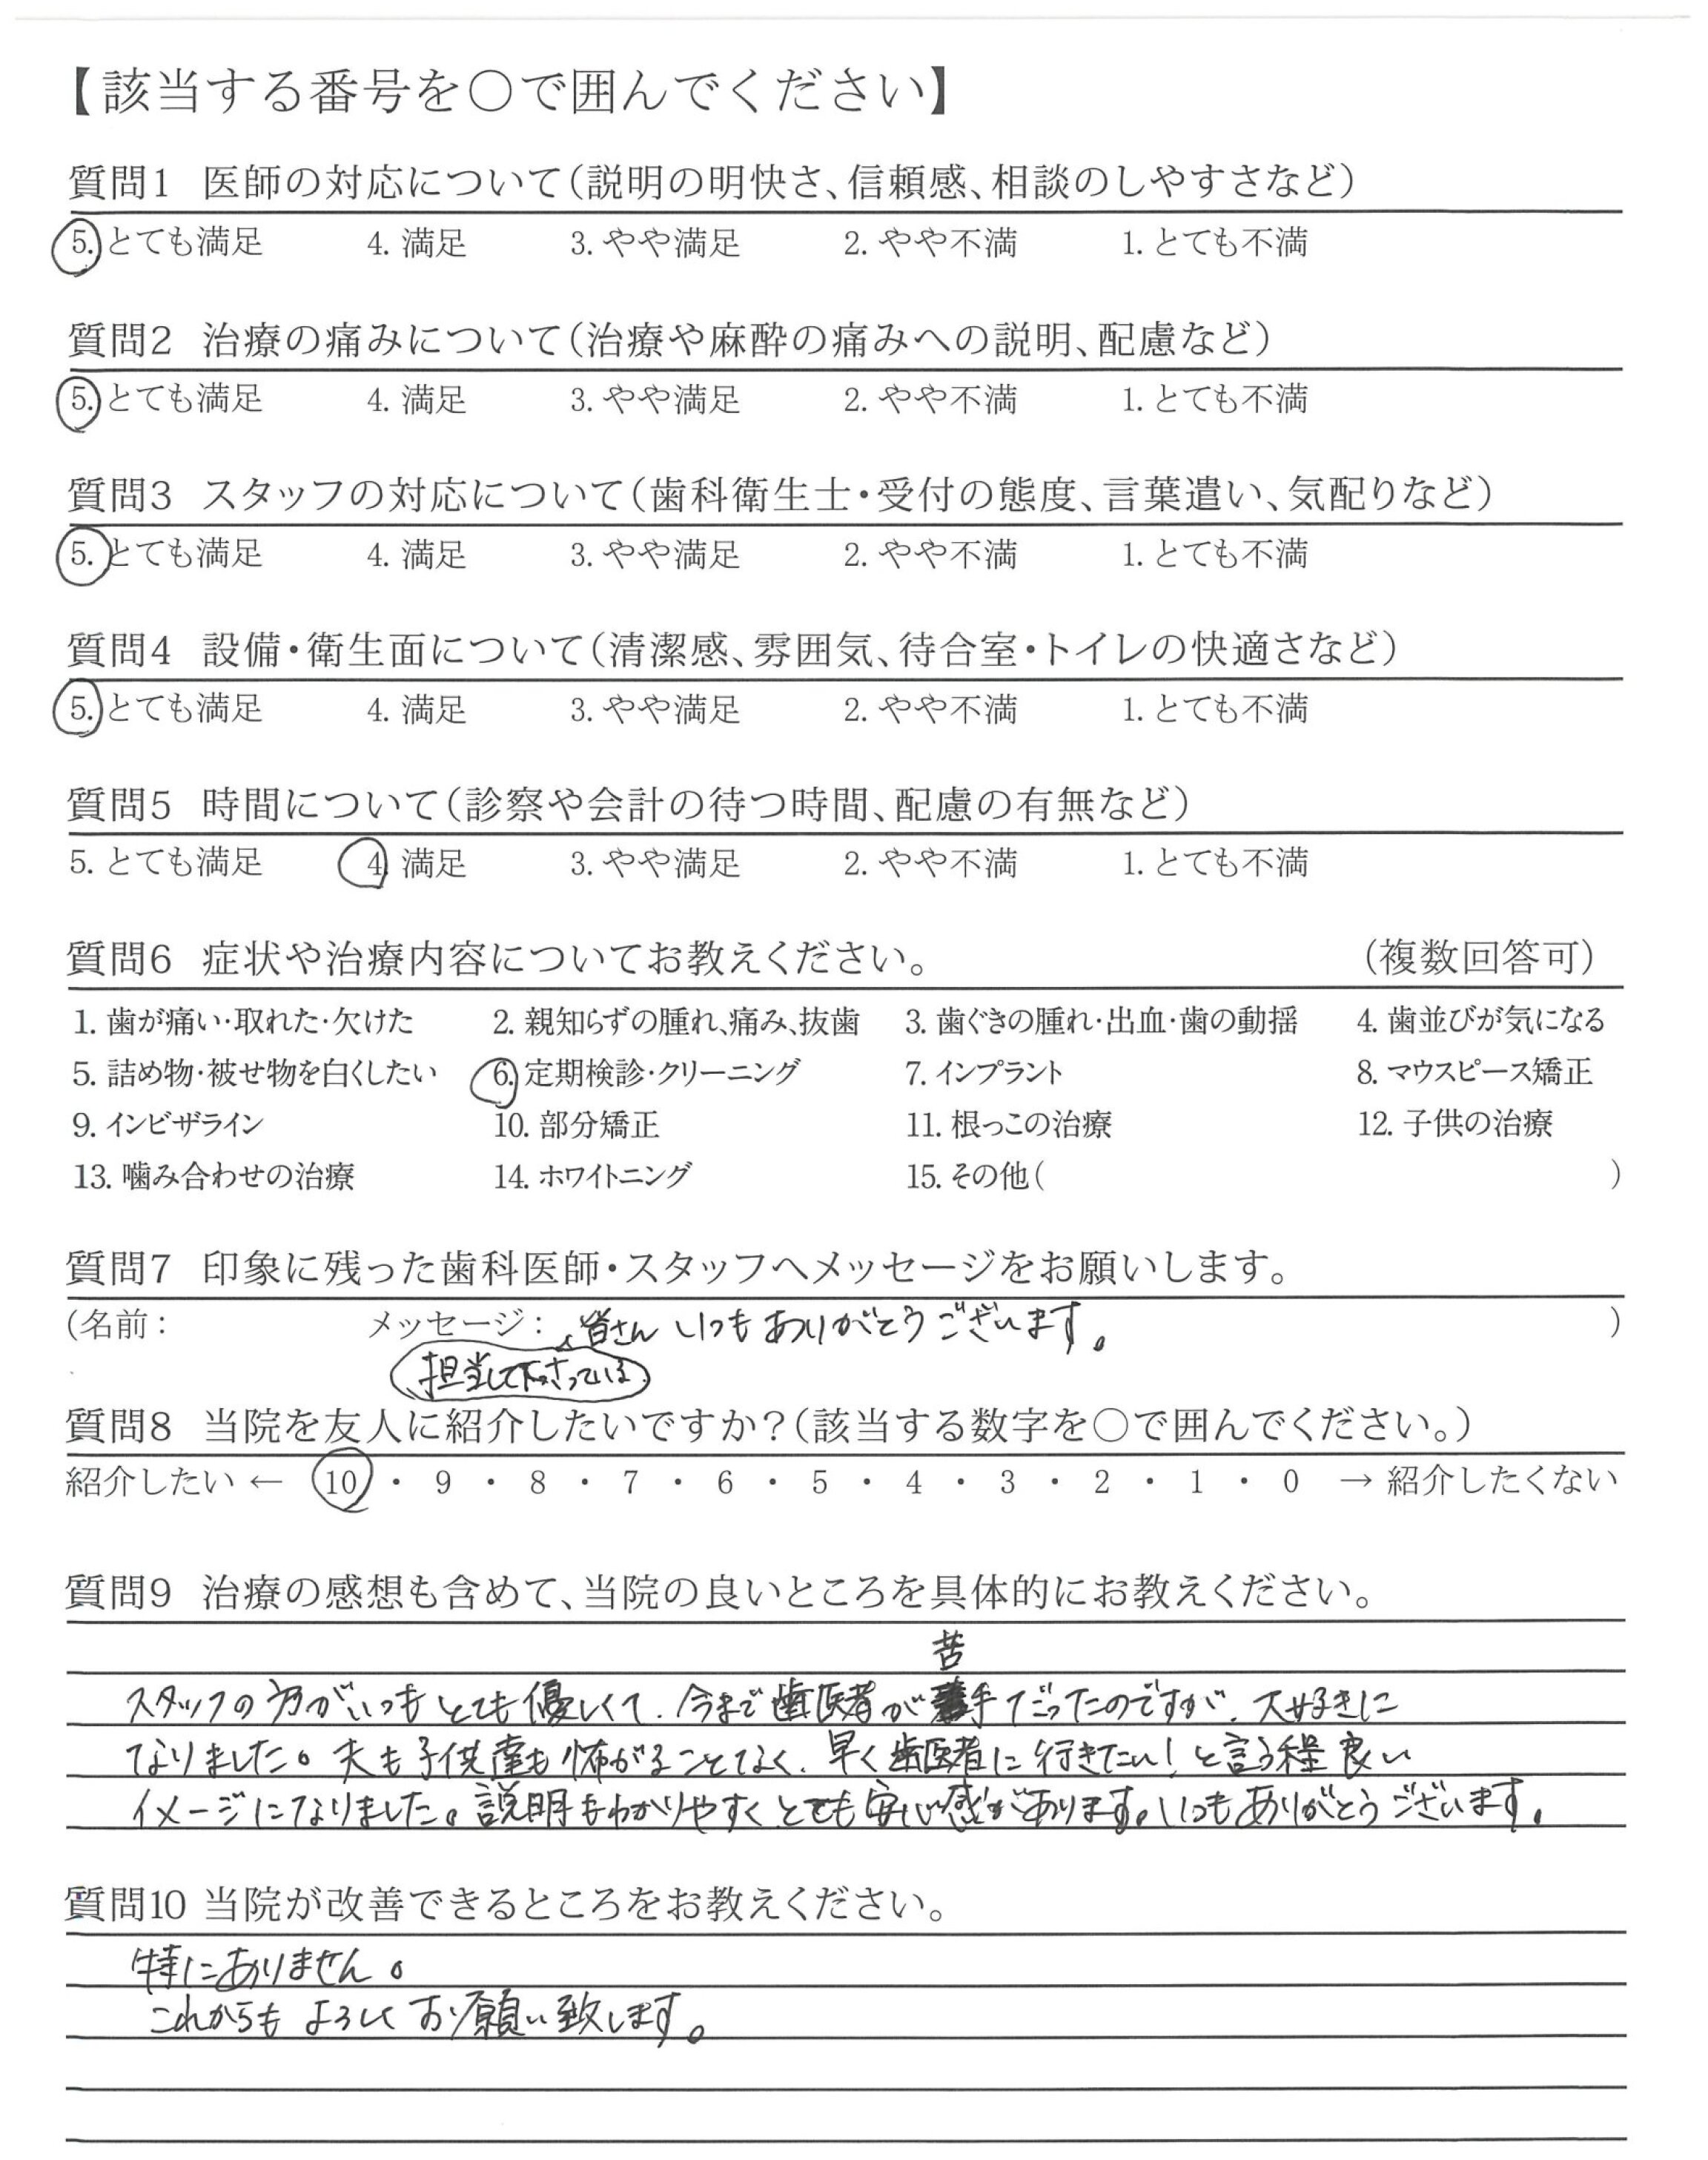 【該当する番号を○で囲んでください】
質問1 医師の対応について(説明の明快さ、信頼感、相談のしやすさなど)
5. とても満足 4. 満足 3. やや満足 2. やや不満 1. とても不満
質問2 治療の痛みについて(治療や麻酔の痛みへの説明、配慮など)
5. とても満足 4. 満足 3. やや満足 2. やや不満 1. とても不満
質問3 スタッフの対応について(歯科衛生士・受付の態度、言葉遣い、気配りなど)
5. とても満足 4. 満足 3. やや満足 2. やや不満 1. とても不満
質問4 設備・衛生面について(清潔感、雰囲気、待合室・トイレの快適さなど)
5. とても満足 4. 満足 3. やや満足 2. やや不満 1. とても不満
質問5 時間について(診察や会計の待つ時間、配慮の有無など)
5. とても満足 4. 満足 3. やや満足 2. やや不満 1. とても不満
質問6 症状や治療内容についてお教えください。 (複数回答可)
1. 歯が痛い・取れた・欠けた 2. 親知らずの腫れ、痛み、抜歯 3. 歯ぐきの腫れ・出血・歯の動揺 4. 歯並びが気になる
5. 詰め物・被せ物を白くしたい 6. 定期検診・クリーニング 7. インプラント 8. マウスピース矯正
9. インビザライン 10. 部分矯正 11. 根っこの治療 12. 子供の治療
13. 噛み合わせの治療 14. ホワイトニング 15. その他( )
質問7 印象に残った歯科医師・スタッフへメッセージをお願いします。
(名前: メッセージ: 皆さん いつも ありがとうございます。 )
担当して下さっている
質問8 当院を友人に紹介したいですか?(該当する数字を○で囲んでください。)
紹介したい ← 10 ・ 9 ・ 8 ・ 7 ・ 6 ・ 5 ・ 4 ・ 3 ・ 2 ・ 1 ・ 0 → 紹介したくない
質問9 治療の感想も含めて、当院の良いところを具体的にお教えください。
苦
スタッフの方がいつもとても優しくて、今まで歯医者が手だったのですが、大好きに
なりました。夫も子供達も怖がることなく、早く歯医者に行きたい!と言う程良い
イメージになりました。説明もわかりやすくとても安心感があります。いつもありがとうございます。
質問10 当院が改善できるところをお教えください。
特にありません。
これからもよろしくお願い致します。